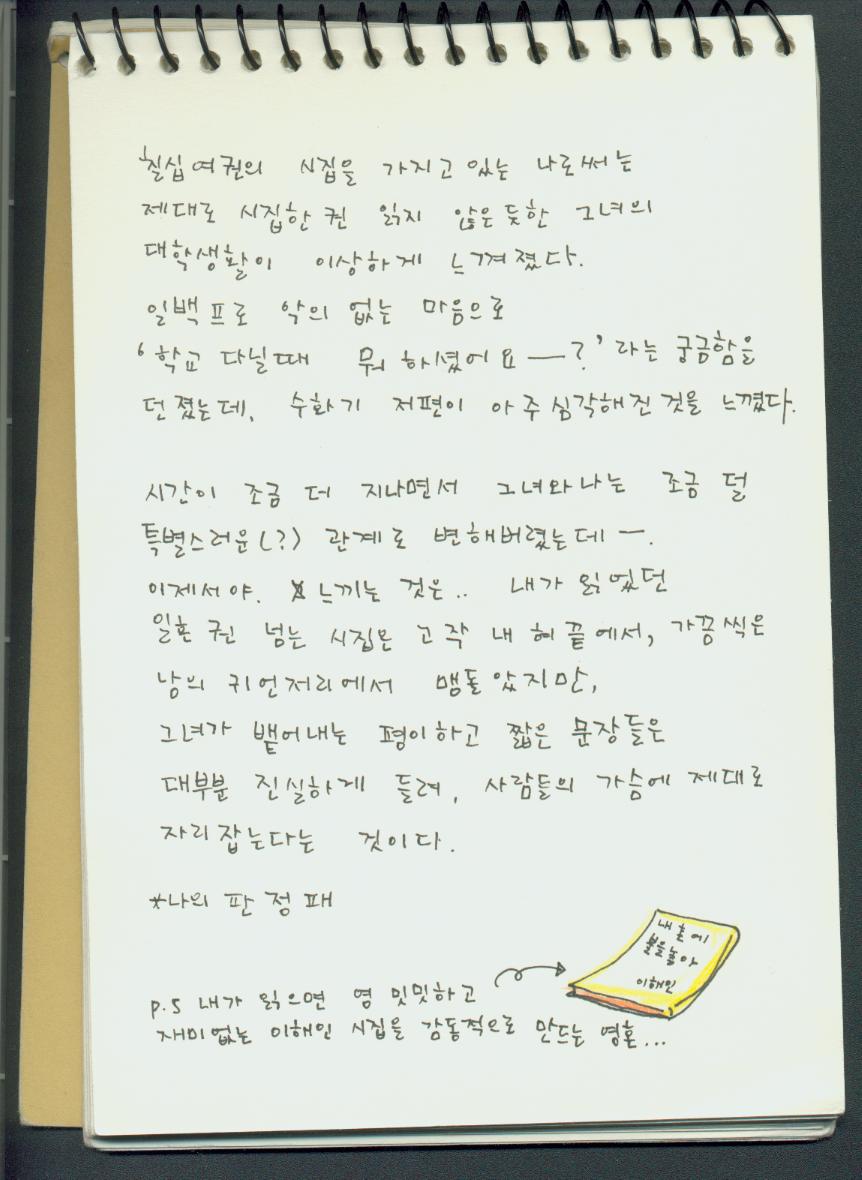 칠십여권의 시집을 가지고 있는 나로써는
제대로 시집한권 읽지 않은듯한 그녀의
대학생활이 이상하게 느껴졌다.
일백프로 악의 없는 마음으로
'학교 다닐때 뭐 하셨어요—?' 라는 궁금함을
던졌는데, 수화기 저편이 아주심각해진것을 느꼈다.
시간이 조금 더 지나면서 그녀와나는 조금 덜
특별스러운(?) 관계로 변해버렸는데—.
이제서야. 느끼는 것은.. 내가 읽었던
일흔 권 넘는 시집은 고작 내 혀끝에서, 가끔씩은
남의 귀언저리에서 맴돌았지만,
그녀가 뱉어내는 평이하고 짧은 문장들은
대부분 진실하게 들려, 사람들의 가슴에 제대로
자리잡는다는 것이다.
*나의 판정패
내 혼에
불을 놓아
이해인
p.s 내가 읽으면 영 밋밋하고
재미없는 이해인 시집을 감동적으로 만드는 영혼...